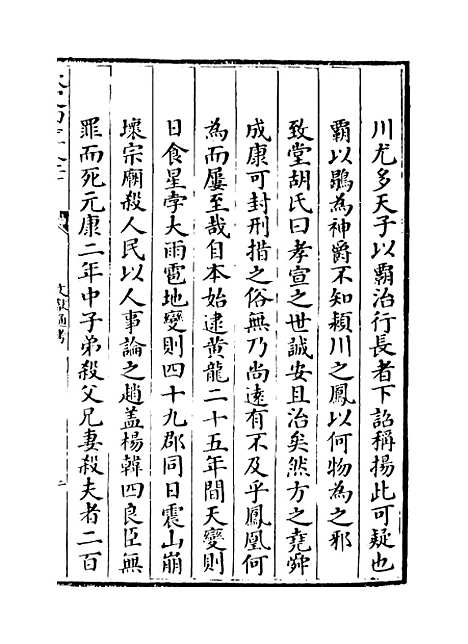 川尤多天子以霸治行長者下詔稱揚此可疑也
霸以鶡為神爵不知潁川之鳳以何物為之邪
致堂胡氏曰孝宣之世誠安且治矣然方之堯舜
成康可封刑措之俗無乃尚遠有不及乎鳳凰何
為而屢至哉自本始逮黄龍二十五年間天變則
日食星孛大雨雹地變則四十九郡同日震山崩
壞宗廟殺人民以人事論之趙盖楊韓四良臣無
罪而死元康二年中子弟殺父兄妻殺夫者二百
文獻通考